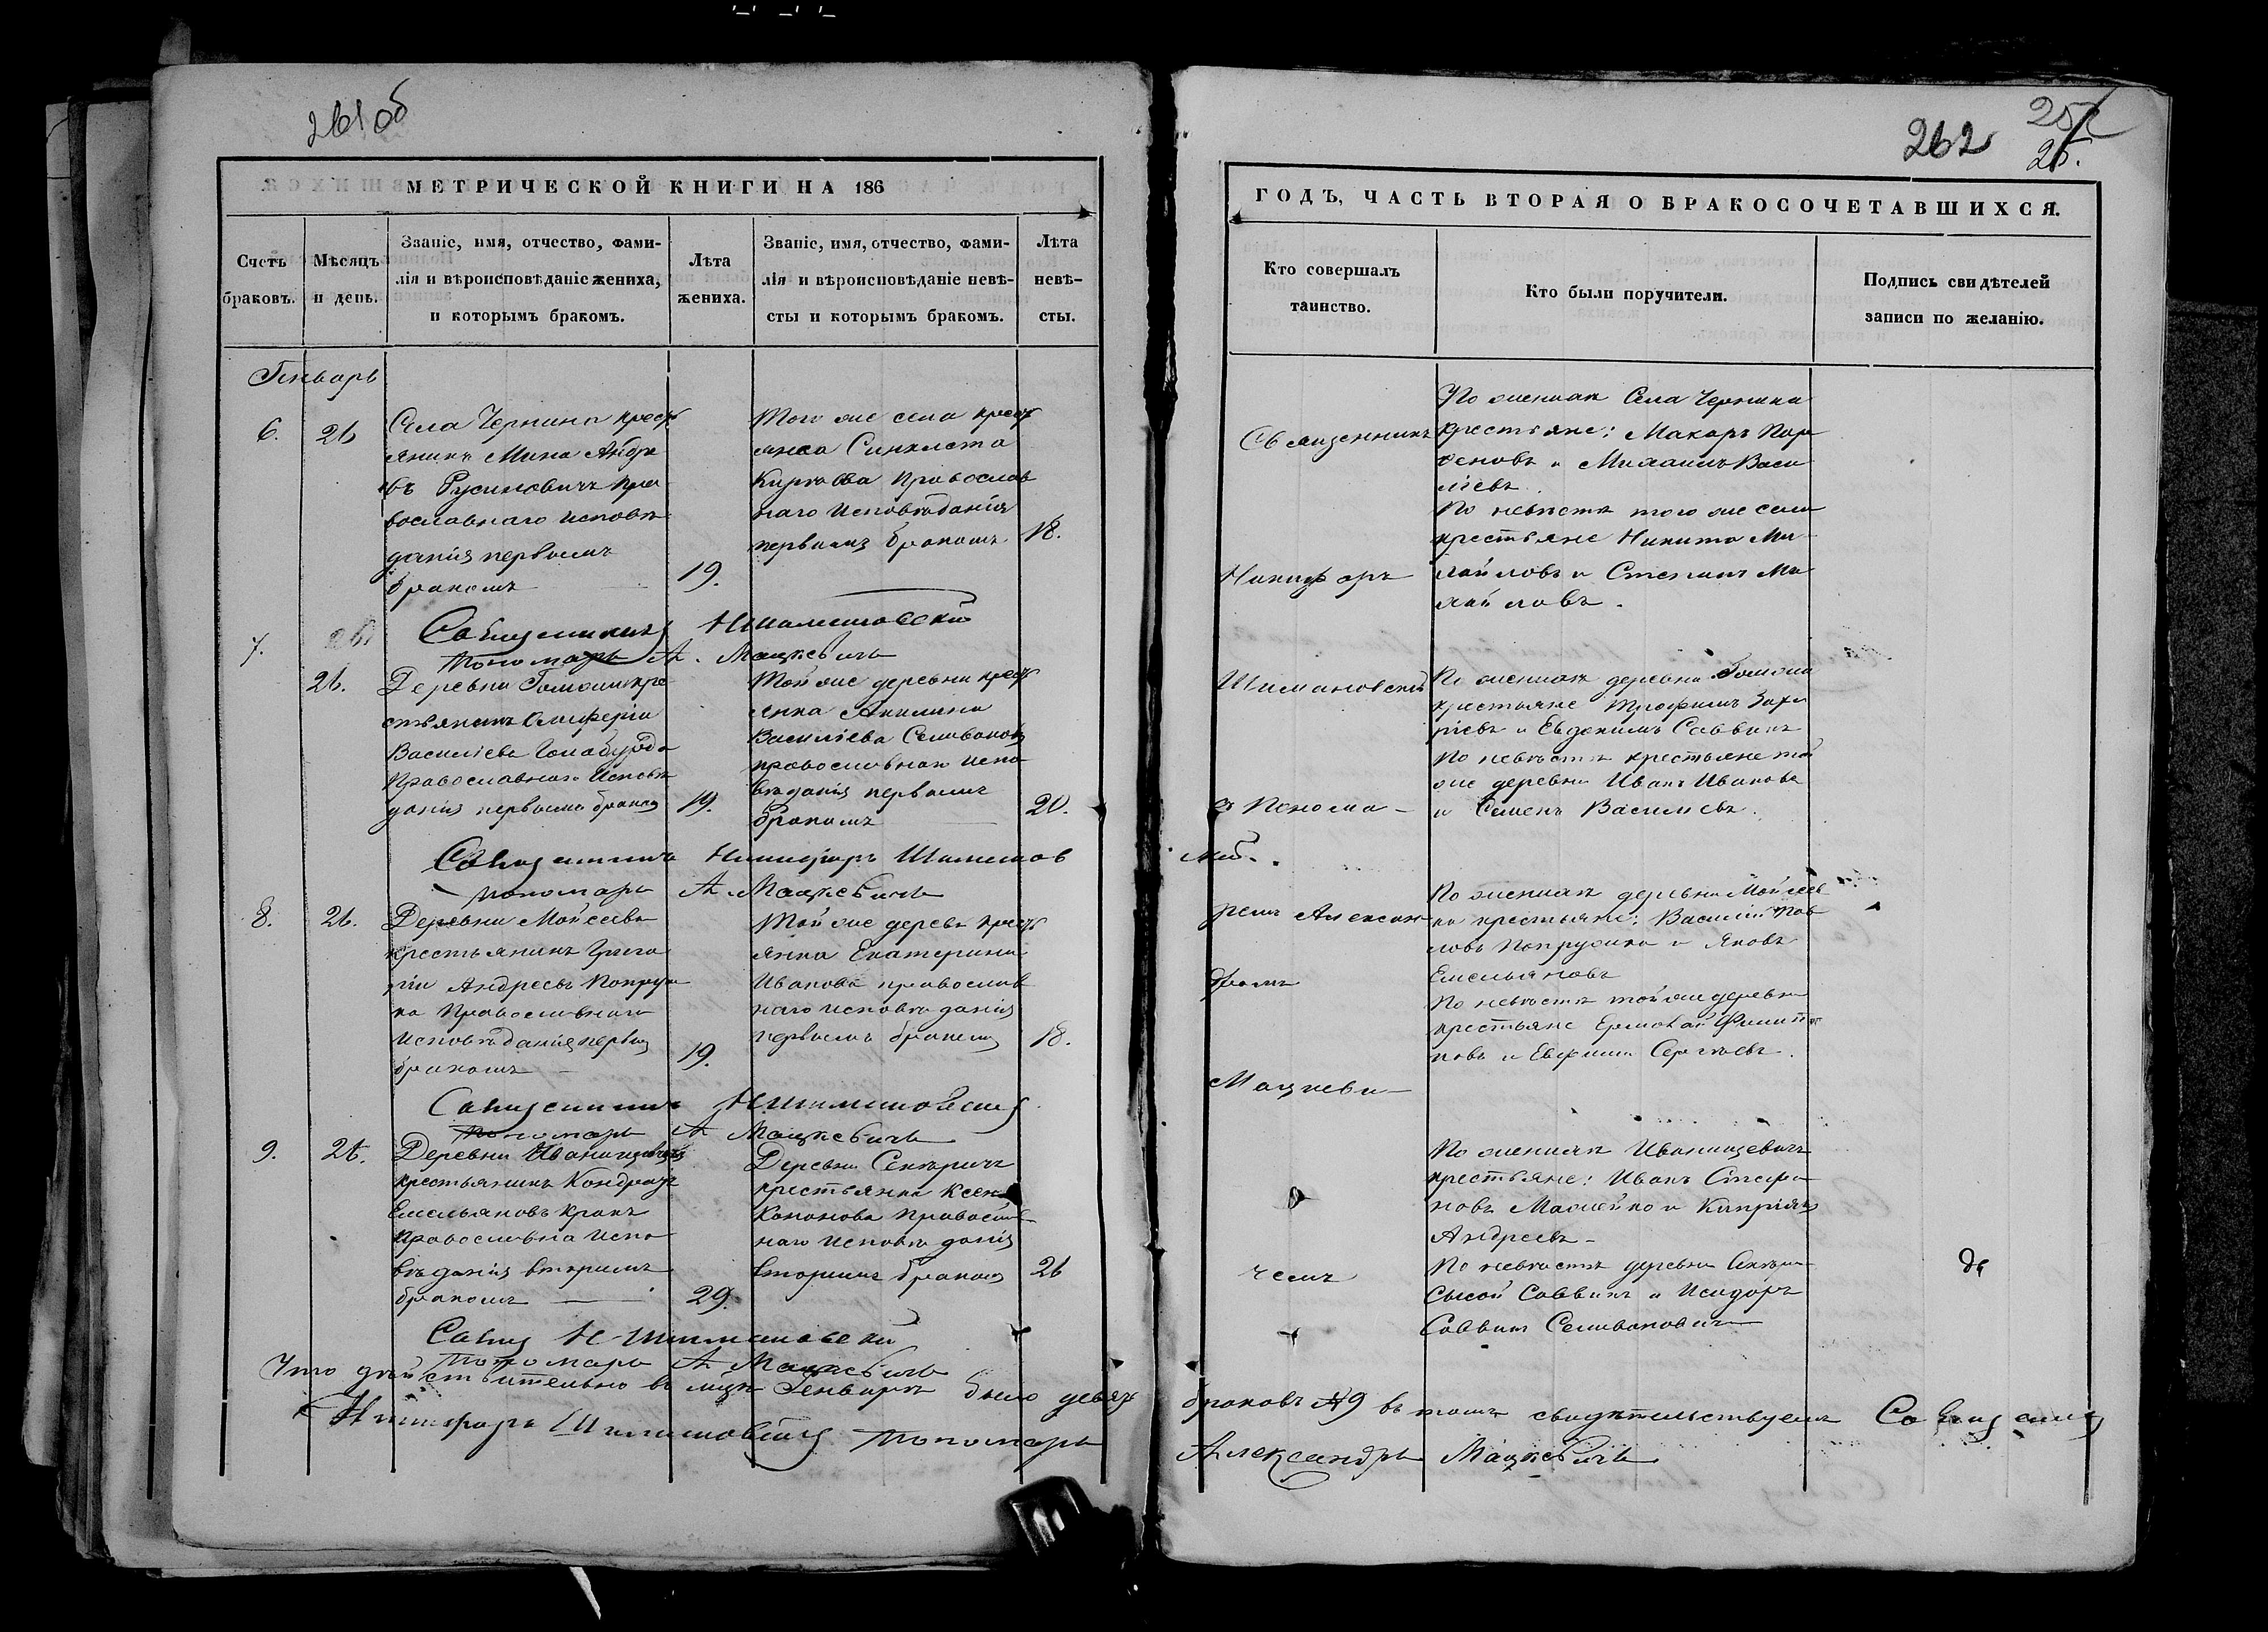 261 об
МЕТРИЧЕСКОЙ КНИГИ НА 186
Счетъ браковъ.
Мѣсяцъ и день.
Званіе, имя, отчество, фами-
лія и вѣроисповѣданіе жениха,
и которымъ бракомъ.
Лѣта жениха.
Званіе, имя, отчество, фами-
лія и вѣроисповѣданіе невѣ-
сты и которымъ бракомъ.
Лѣта невѣ-
сты.
Генварь
6. 26
Села Чернина крест
янинъ Мина Андре
въ Русиновичъ пра
вославнаго исповѣ
данія первымъ
бракомъ
19.
Того же села крест
янка Синклета
Киркова православ
наго исповѣданія
первымъ бракомъ
18.
Священникъ Н Шимановскій
Пономарь А. Мацкевичъ
7.
26.
Деревни кре
стьянинъ Елиферій
Василіевъ
Православнаго исповѣ
данія первымъ бракомъ
19.
Той же деревни крест
янка Акилина
Василіева Селиванов
православнаго испо
вѣданія первымъ
бракомъ
20.
Священникъ Никифоръ Шиманов
Пономарь А. Мацкевичъ
8. 26.
Деревни Мойсеевк
крестьянинъ Григо
рій Андреевъ Попруж
ка Православнаго
исповѣданія первым
бракомъ
19.
Той же деревн крест
янка Екатерина
Иванова православ
наго исповѣданія
первымъ бракомъ
18.
Священникъ Н Шимановский
Пономарь А Мацкевичъ
9. 26.
Деревни Иванищевичъ
крестьянинъ Кондрат
Емельяновъ Кракъ
Православна испо
вѣданія вторымъ
бракомъ
29.
Деревни Секѣричъ
крестьянка Ксен
Кононова Правосла
наго исповѣданія
вторымъ бракомъ
26
Свящ Н Шимановский
Пономарь А Мацкевичъ
Что действительно въ мцѣ Генварѣ было девять
Никифоръ Шимановскій Пономарь
262
25.
ГОДЪ, ЧАСТЬ ВТОРАЯ О БРАКОСОЧЕТАВШИХСЯ.
Кто совершалъ
таинство.
Кто были поручители.
Подпись свидѣтелей
записи по желанію.
Священникъ
Никифоръ
Шимановскій
съ Понома-
ремъ Алексан
дромъ
Мацкеви-
чемъ
По женихѣ Села Чернина
крестьяне: Макаръ Пар
феновъ и Михаилъ Васи
ліевъ.
По невѣстѣ того же села
крестьяне Никита Ми-
хайловъ и Степанъ Ми
хайловъ.
По женихѣ деревни
крестьяне Трофимъ Заха
ріевъ и Евдокимъ Саввинъ
По невѣстѣ крестьяне той
же деревни Иванъ Ивановъ
и Семенъ Василіевъ.
По женихѣ деревни Мойсеев
ки крестьяне: Василій Пав
ловъ Попружка и Яковъ
Емельяновъ
По невѣстѣ той же деревни
крестьяне Ермолай Филип
повъ и Сергѣевъ.
По женихѣ Иванищевичъ
крестьяне: Иванъ Стефа
новъ и Кипріянъ
Андреевъ
По невѣстѣ деревни
Сысой Саввинъ и Исидоръ
Саввинъ Селивановичъ
браковъ №9 въ томъ свидѣтельствуемъ Священник
Александръ Мацкевичъ